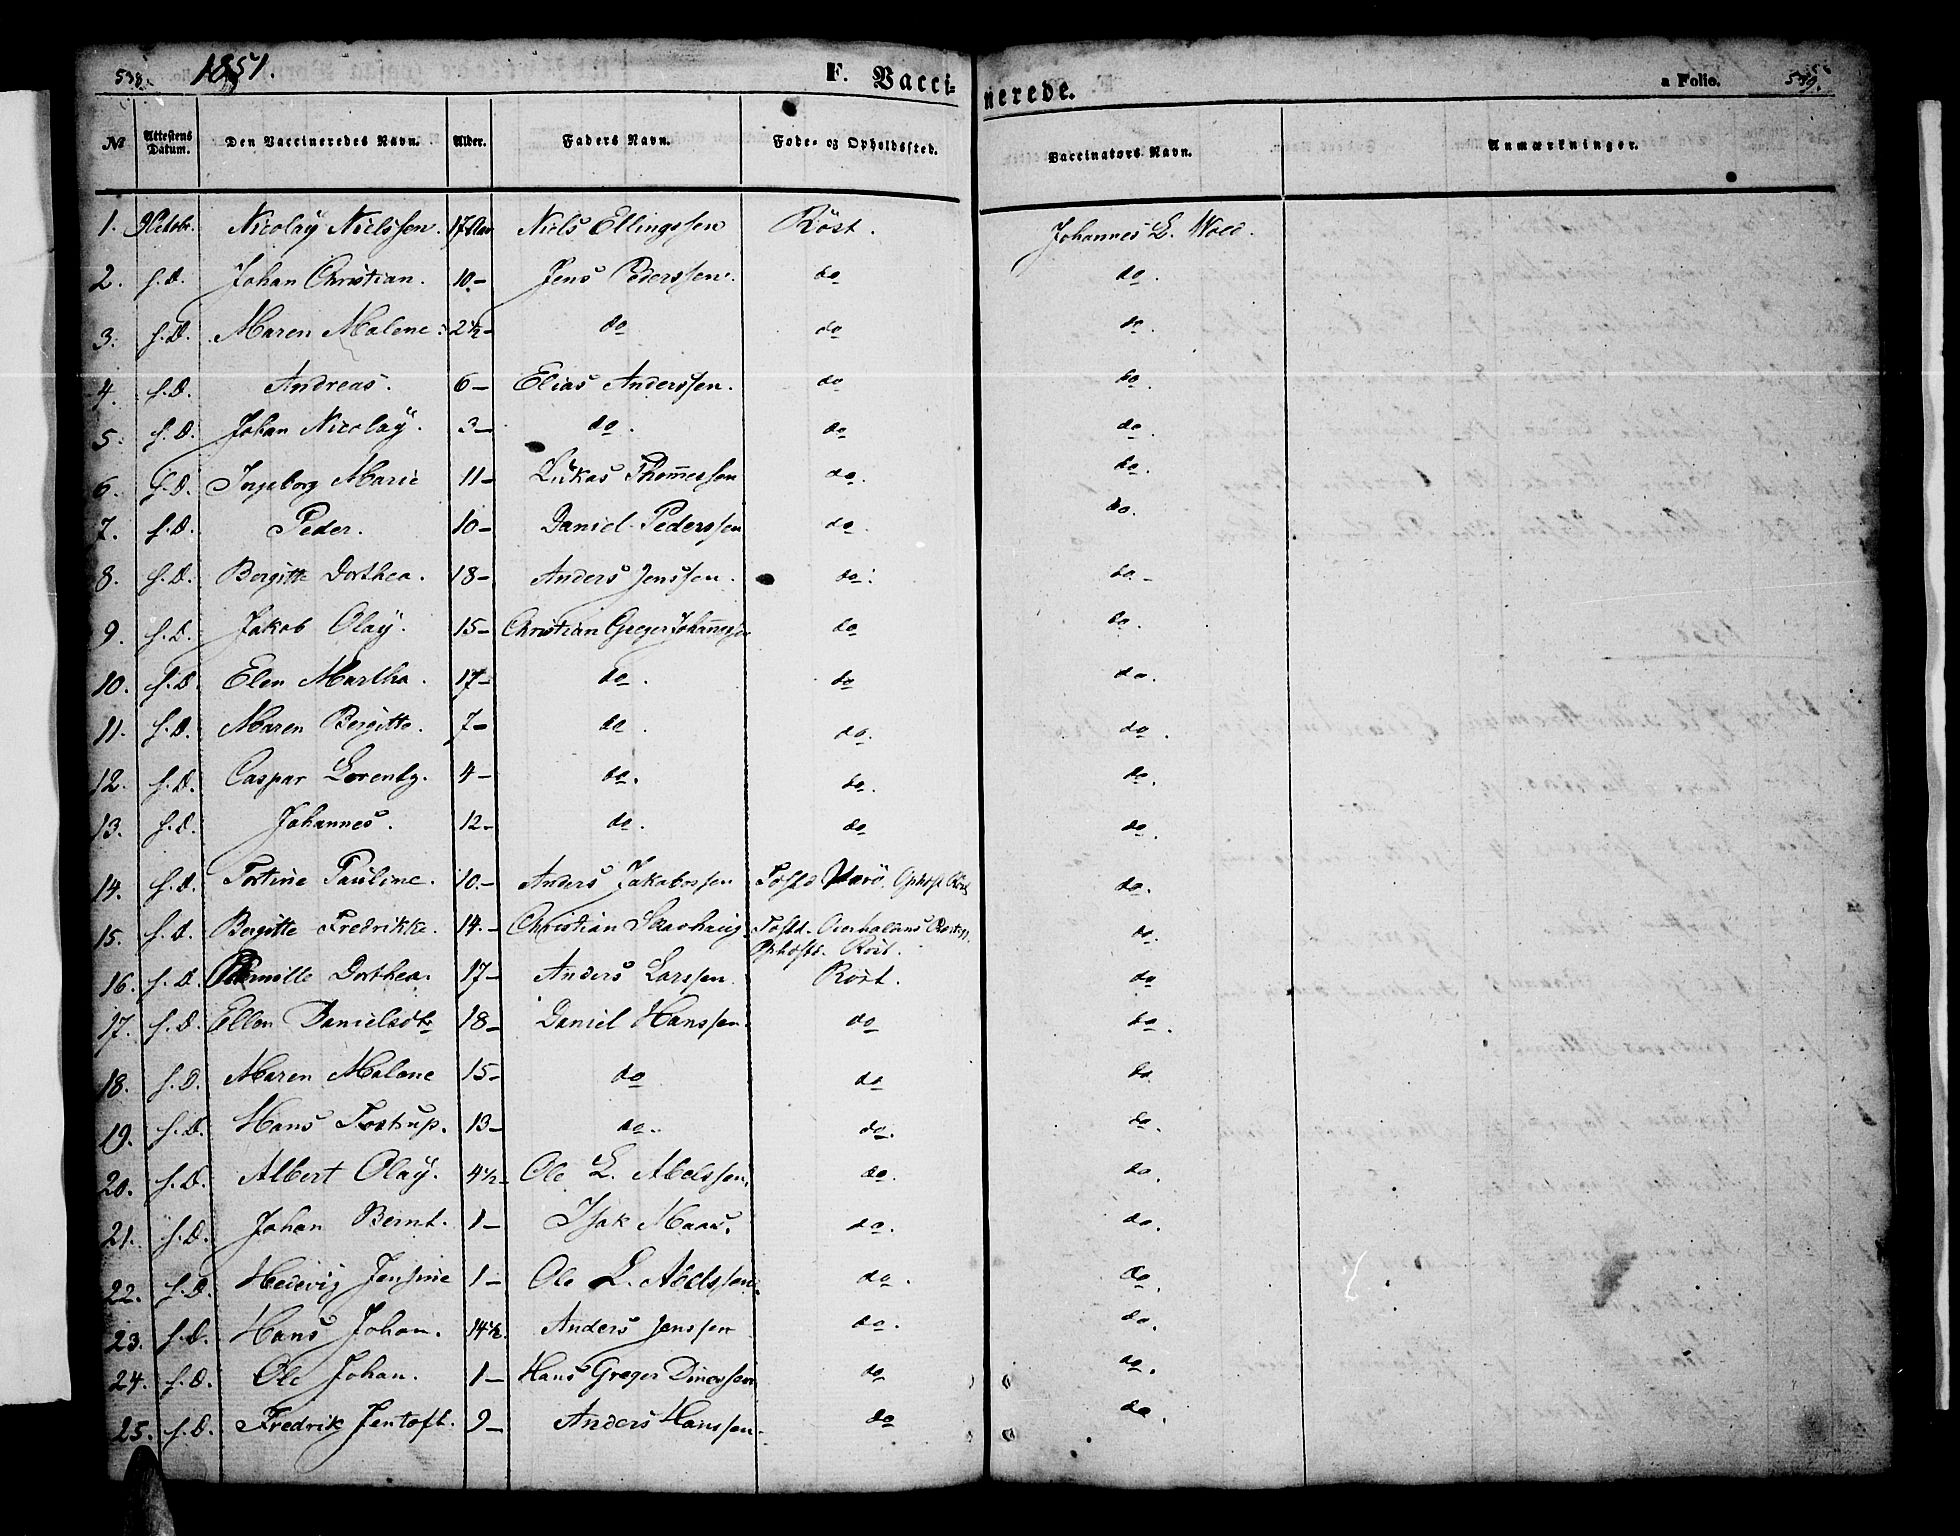 538. 1851. F. Vacci-
nerede. a Folio. 539.
No Attestens Datum. Den Vaccineredes Navn. Alder. Faders Navn. Føde- og Opholdssted. Vaccinators Navn. Anmærkninger.
1. Nicolay Nielssen. 17 Niels Ellingssen Röst. Johannes L. Wold.
2. s. D. Johan Christian. 10- Jens Pederssen. do do.
3. s. D. Maren Malene. 2½- do do do.
4. s. D. Andreas. 6- Elias Anderssen. do do.
5. s. D. Johan Nicolay. 3- do. do do.
6. s. D. Ingeborg Marie 11- Lukas Thomessen do. do.
7. s. D. Peder. 10- Daniel Pederssen do. do.
8. s. D. Bergitte Dorthea. 18- Anders Jenssen. do. do.-
9. s. D. Jakob Olay. 15- Christian Greger Johannessen do do.
10. s. D. Elen Martha. 17- do. do do.
11. s. D. Maren Bergitte. 7- do. do. do.
12. s. D. Caspar Lorentz. 4- do. do. do.
13. s. D. Johannes. 12- do. do do.
14. s. D. Tortine Pauline. 10.- Anders Jakobssen Værö. Röst do.
15. s. D. Bergitte Fredrikke. 14.- Christian Skavhaug. do.
Röst.
16. s. D. Pernille Dorthea. 17- Anders Larssen. Röst. do
17. s. D. Ellen Danielsdtr 18- Daniel Hanssen. do do.
18. s. D. Maren Malene 15- do do do.
19. s. D. Hans Tostrup. 13- do. do. do.
20. s. D. Albert Olay. 4½- Ole L. Abelssen. do. do.
21. s. D. Johan Bernt. 1- Isak Maas. do. do.
22. s. D. Hedevig Jensine 1- Ole L. Abelssen. do. do.
23. s. D. Hans Johan. 14½. Anders Jenssen do. do.
24. s. D. Ole Johan. 1- Hans Greger Dinessen do do.
25. s. D. Fredrik Jentoft. 9- Anders Hanssen. do do.